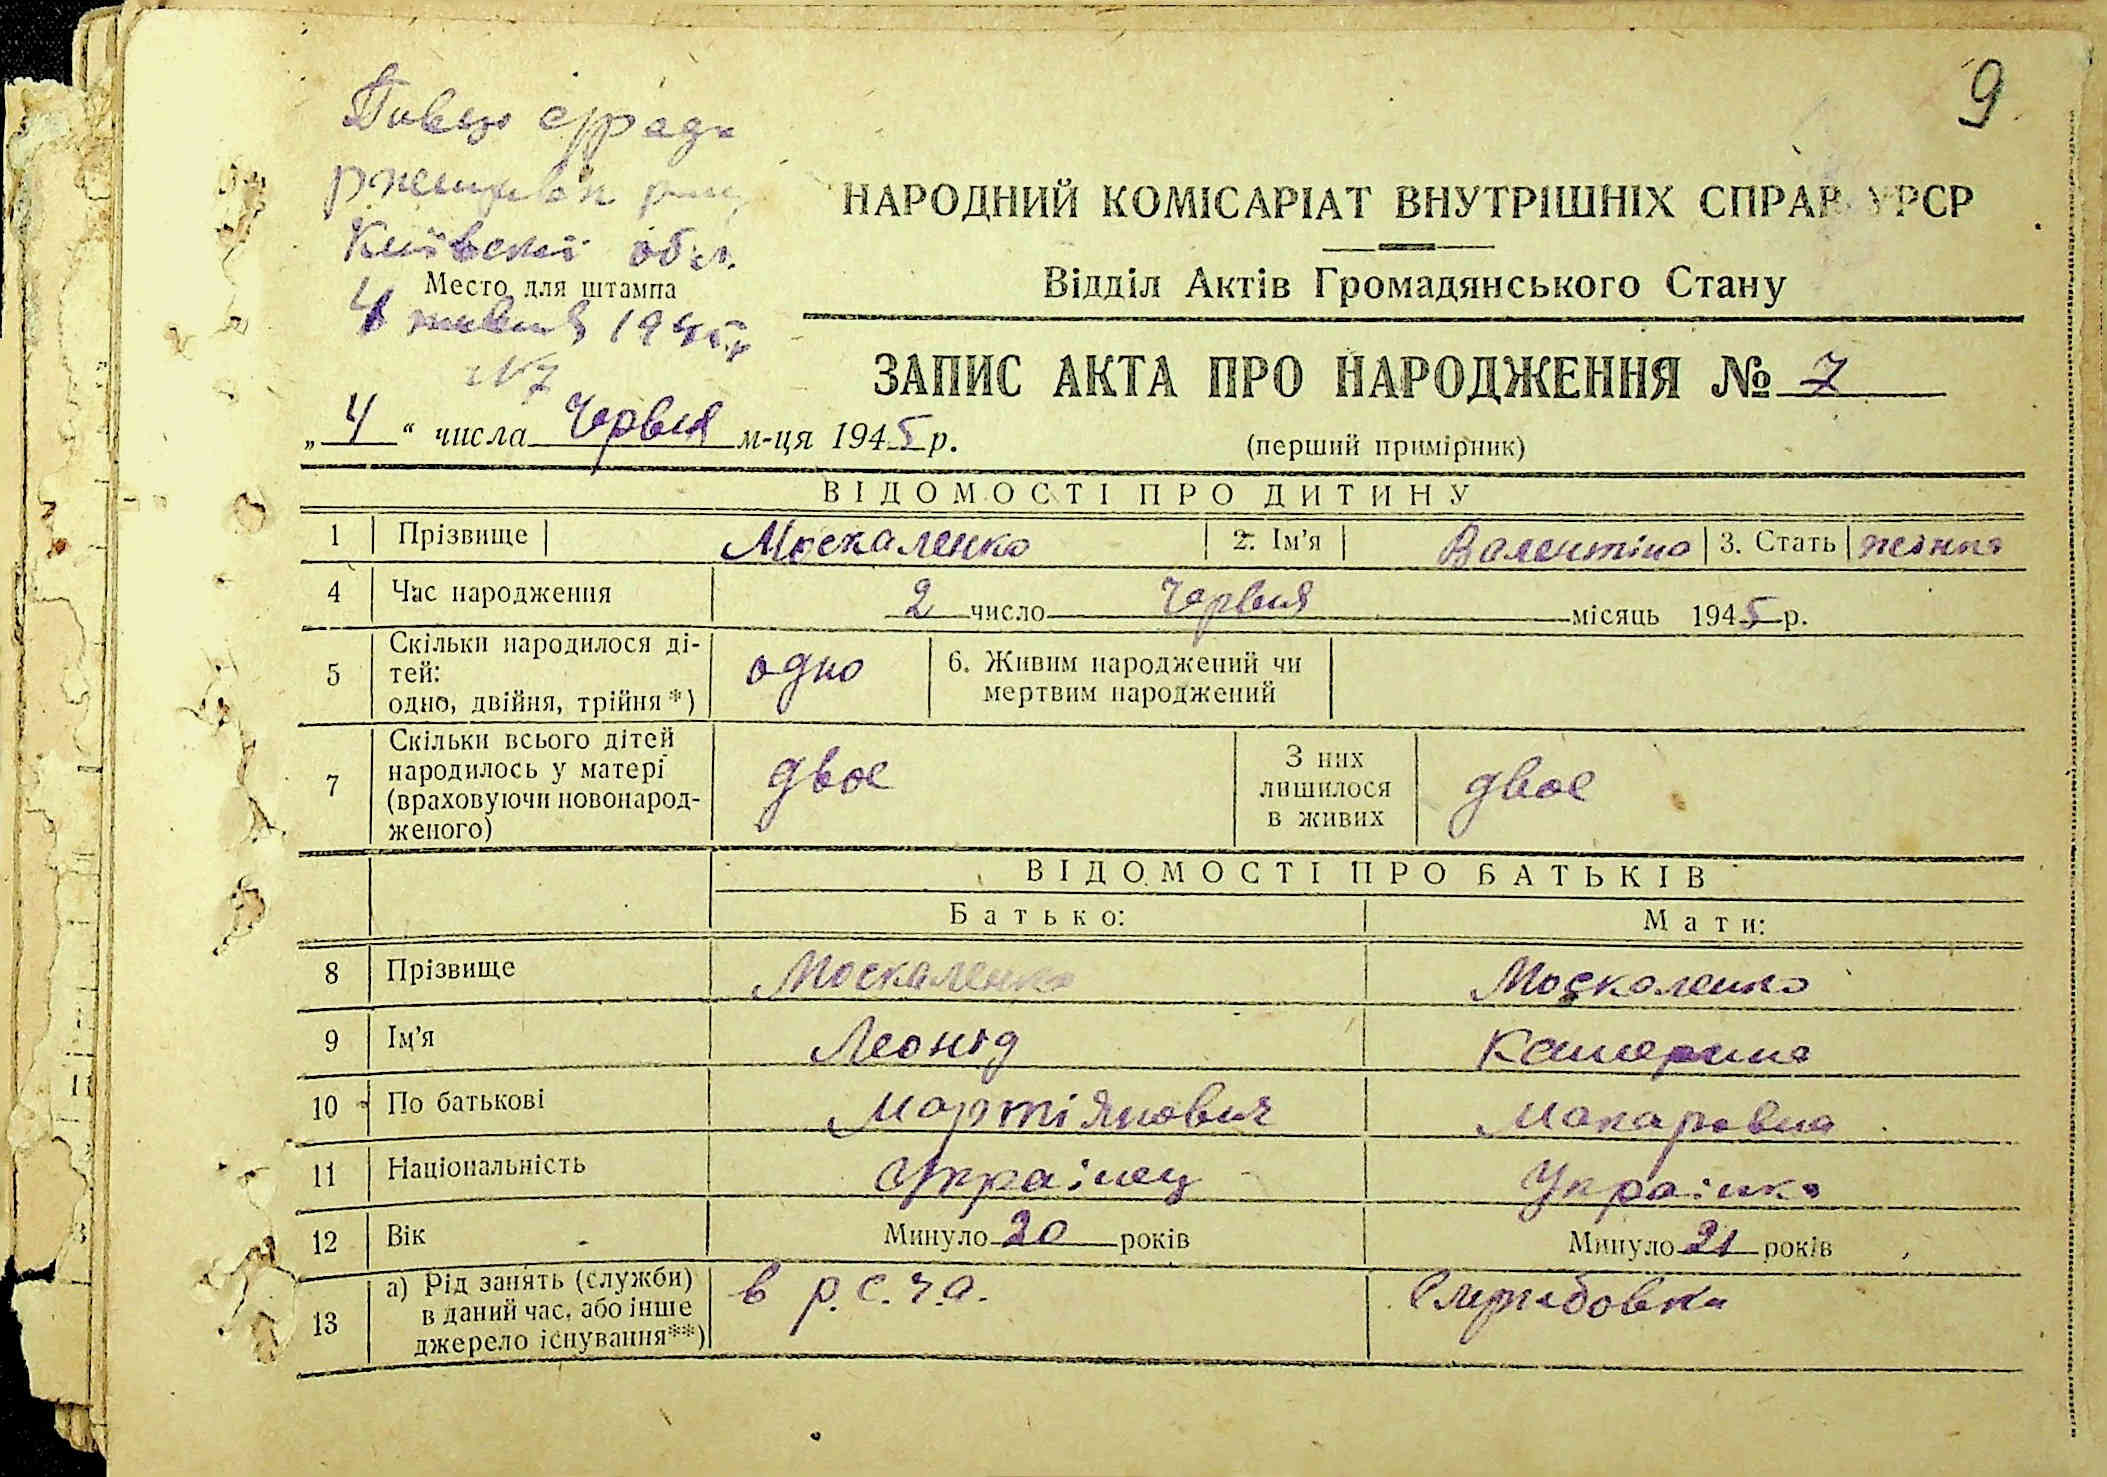 9
с/рада
Київскої обл.
НАРОДНИЙ КОМІСАРІАТ ВНУТРІШНІХ СПРАВ УРСР
Відділ Актів Громадянського Стану
Место для штампа
4 1945 р
№ 7
ЗАПИС АКТА ПРО НАРОДЖЕННЯ № 7
„ 4 “ числа Червня м-ця 1945 р.
(перший примірник)
ВІДОМОСТІ ПРО ДИТИНУ
1 Прізвище Москаленко 2. Ім'я Валентина 3. Стать жіноча
4 Час народження 2 число Червня місяць 1945 р.
5 Скільки народилося ді-
тей:
одно, двійня, трійня *)
одно
6. Живим народжений чи
мертвим народжений
7 Скільки всього дітей
народилось у матері
(враховуючи новонарод-
женого)
двое
З них
лишилося
в живих
двое
ВІДОМОСТІ ПРО БАТЬКІВ
Батько: Мати:
8 Прізвище Москаленко Москаленко
9 Ім'я Леонід Катерина
10 По батькові Мартіянович Макаровна
11 Національність Українец Українка
12 Вік Минуло 20 років Минуло 21 років
13 а) Рід занять (служби)
в даний час, або інше
джерело існування**)
в р.с.ч.а.